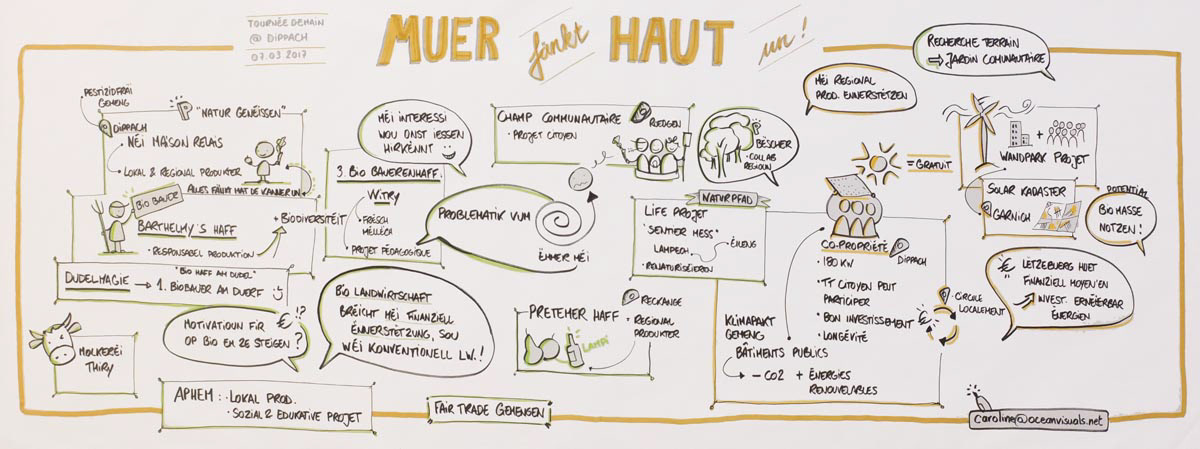 TOURNÉE DEMAIN
@ DIPPACH
07.03 2017
MUER fänkt HAUT un!
RECHERCHE TERRAIN
⇨ JARDIN COMUNAUTAIRE
PESTIZIDFRÄI
GEMENG
DIPPACH
NÉI MAISON RELAIS
• LOKAL & REGIONAL PRODUKTER
"NATUR GENÉISSEN"
ALLES FÄNKT MAT DE KANNER UN
BIO BAUER
BARTHELMY'S HAFF
• RESPONSABEL PRODUCTION
+ BIODIVERSTÉIT
DUDELMAGIE → "BIO HAFF AM DUDEL"
1. BIOBAUER AM DUERF
MOLKERÉI
THIRY
MOTIVATIOUN FIR € !?
OP BIO EM ZE STEIGEN ?
APHEM : • LOKAL PROD.
• SOZIAL & EDUKATIVE PROJET
MÉI INTERESSI
WOU ONST IESSEN
HIRKËNNT
3. BIO BAUERENHAFF.
W.TRY
• FRËSCH
MËLLECH
PROJET PÉDAGOGIQUE
PROBLEMATIK VUM
ËMMER MÉI
BIO LANDWIRTSCHAFT
BRÉICHT MÉI FINANZIELL
ËNNERSTËTZUNG, SOU
WÉI KONVENTIONELL LW.!
FAIR TRADE GEMENGEN
CHAMP COMMUNAUTAIRE
• PROJET CITOYEN
ROEDGEN
BËSCHER
• COLLAB
REGIOUN
PRETEMER HAFF
LAMPI
RECKANGE
• REGIONAL
PRODUKTER
NATURPFAD
LIFE PROJET
"SENTIER MESS"
LAMPECH
• ÉILENG
• RENATURISÉIEREN
KLIMAPAKT
GEMENG
BÂTIMENTS PUBLICS
→ - CO2 + ÉNERGIES
RENOUVELABLES
MÉI REGIONAL
PROD. ENNERSTËTZEN
= GRATUIT
CO-PROPRIÉTÉ
DIPPACH
• 180 KW
• TT CITOYEN PEUT
PARTICIPER
• BON INVESTISSEMENT
• LONGÉVITÉ
€
• CIRCULE
LOCALEMENT
+
WANDPARK PROJET
SOLAR KADASTER
GARNICH
POTENTIAL
BIOMASSE
NOTZEN!
€ LËTZEBUERG HUET
FINANZIELL MOYEN'EN
INVEST. ERNÉIERBAR
ENERGIEN
caroline@oceanvisuals.net